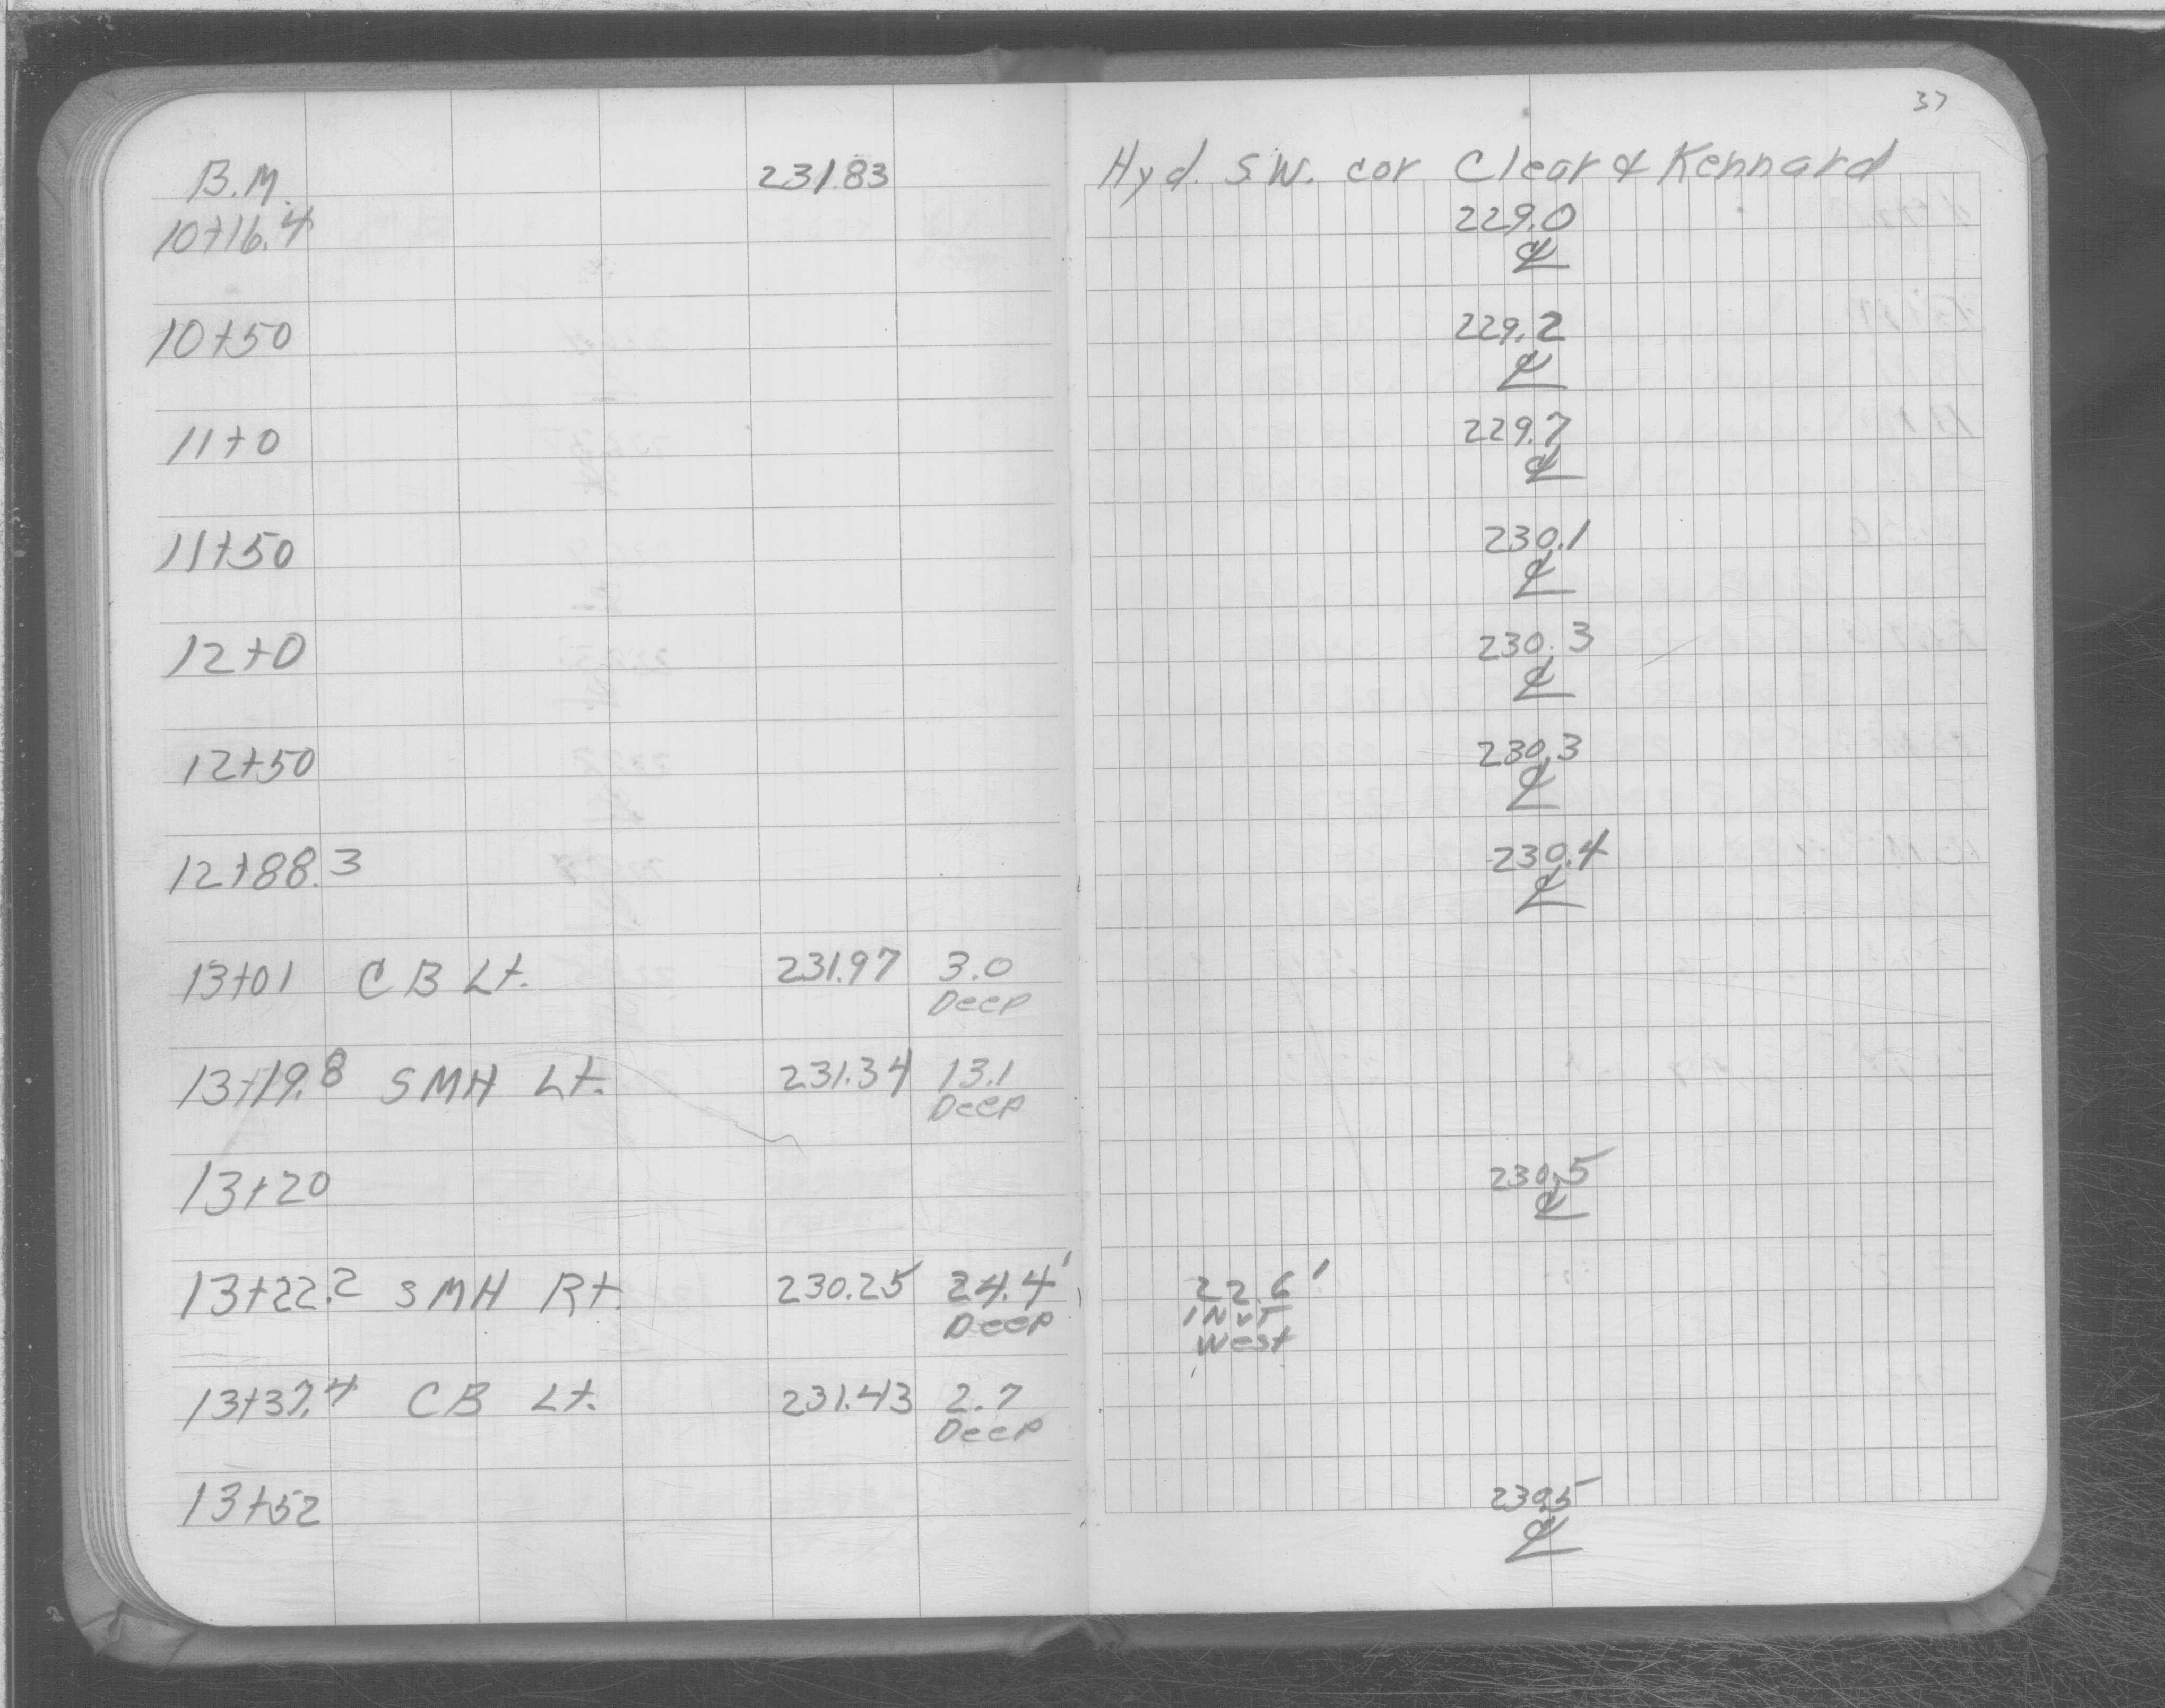 37
B.M. 231.83 Hyd. S.W. cor Clear & Kennard
10+16.4 229.0
℄
10+50 229.2
℄
11+0 229.7
℄
11+50 230.1
℄
12+0 230.3
℄
12+50 230.3
℄
12+88.3 230.4
℄
13+01 CB Lt. 231.97 3.0
Deep
13+19.8 SMH Lt. 231.34 13.1
Deep
13+20 230.5
℄
13+22.2 SMH Rt. 230.25 24.4' 22.6'
Deep INVT
West
13+37.4 CB Lt. 231.43 2.7
Deep
13+52 230.5
℄